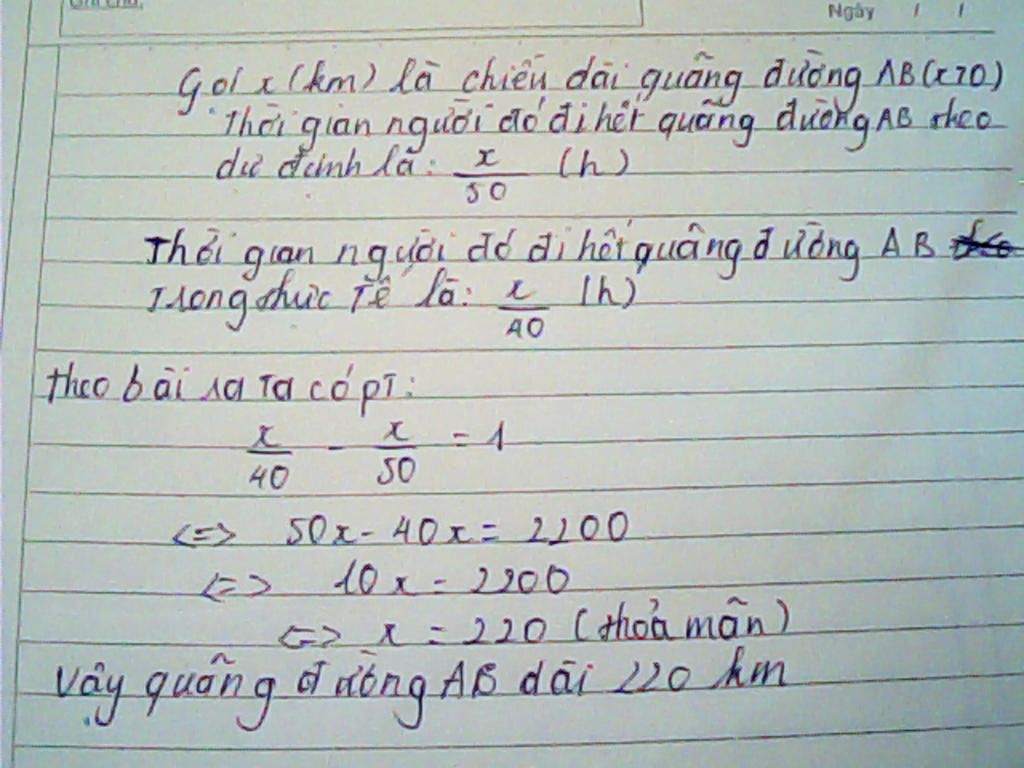 Ghi chú:
Ngày / /
Gọi x (km) là chiều dài quãng đường AB (x>0)
Thời gian người đó đi hết quãng đường AB theo
dự định là: x/50 (h)
Thời gian người đó đi hết quãng đường AB
trong thực tế là: x/40 (h)
Theo bài ra ta có pT:
x/40 - x/50 = 1
<=> 50x - 40x = 2200
<=> 10x = 2200
<=> x = 220 (thỏa mãn)
Vậy quãng đường AB dài 220 km